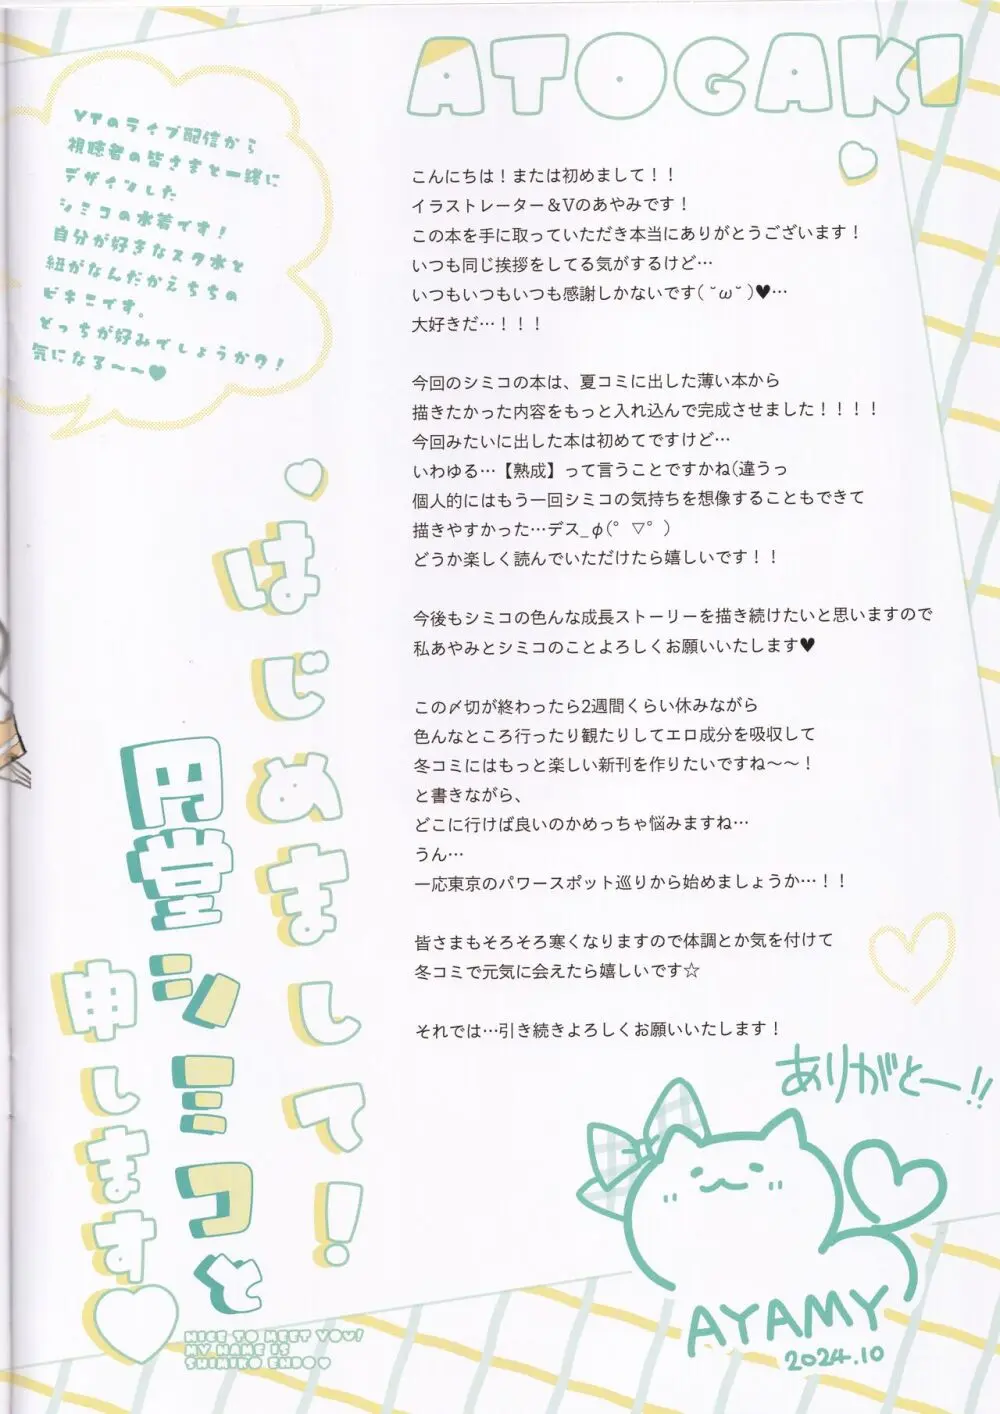 ATOGAKI
VTのライブ配信から
視聴者の皆さまと一緒に
デザインした
シミコの水着です!
自分が好きなスク水と
紐がなんだかえちちの
ビキニです。
どっちが好みでしょうか?!
気になる～～♥
こんにちは!または初めまして!!
イラストレーター&Vのあやみです!
この本を手に取っていただき本当にありがとうございます!
いつも同じ挨拶をしてる気がするけど…
いつもいつもいつも感謝しかないです( ˘ω˘ )♥…
大好きだ…!!!
今回のシミコの本は、夏コミに出した薄い本から
描きたかった内容をもっと入れ込んで完成させました!!!!
今回みたいに出した本は初めてですけど…
いわゆる…【熟成】って言うことですかね(違うっ
個人的にはもう一回シミコの気持ちを想像することもできて
描きやすかった…デス_φ(°▽°)
どうか楽しく読んでいただけたら嬉しいです!!
今後もシミコの色んな成長ストーリーを描き続けたいと思いますので
私あやみとシミコのことよろしくお願いいたします♥
この〆切が終わったら2週間くらい休みながら
色んなところ行ったり観たりしてエロ成分を吸収して
冬コミにはもっと楽しい新刊を作りたいですね～～!
と書きながら、
どこに行けば良いのかめっちゃ悩みますね…
うん…
一応東京のパワースポット巡りから始めましょうか…!!
皆さまもそろそろ寒くなりますので体調とか気を付けて
冬コミで元気に会えたら嬉しいです☆
それでは…引き続きよろしくお願いいたします!
はじめまして!
円堂シミコと
申します♡
NICE TO MEET YOU!
MY NAME IS
SHIMIKO ENDO♥
ありがとー!!
AYAMY
2024.10